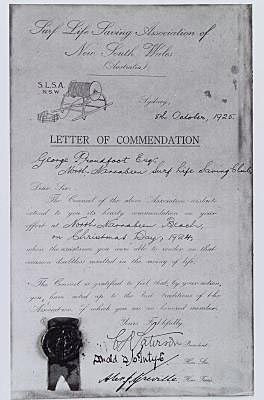 Surf Life Saving Association of
New South Wales
(Australia)
S.L.S.A.
N.S.W.
Sydney,
8th October, 1925.
LETTER OF COMMENDATION
George Proudfoot Esq.
North Narrabeen Surf Life Saving Club
Dear Sir
The Council of the above Association desires to
extend to you its hearty commendation on your
effort at North Narrabeen Beach,
on Christmas Day, 1924,
when the assistance you were able to render on that
occasion doubtless resulted in the saving of life.
The Council is gratified to feel that, by your action,
you have acted up to the best traditions of the
Association, of which you are an honored member.
Yours Faithfully
President
Donald D. McIntyre
Hon. Sec.
Alex J. Greville
Hon. Treas.